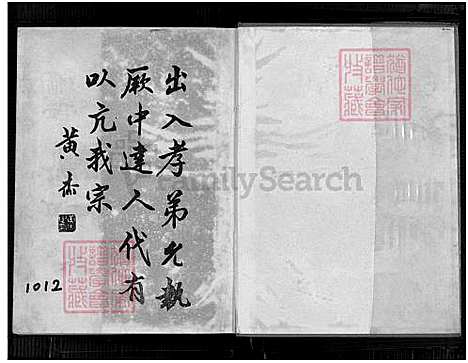 出入孝弟允執
厥中達人代有
以亢我宗
黄杰
1012
FamilySearch